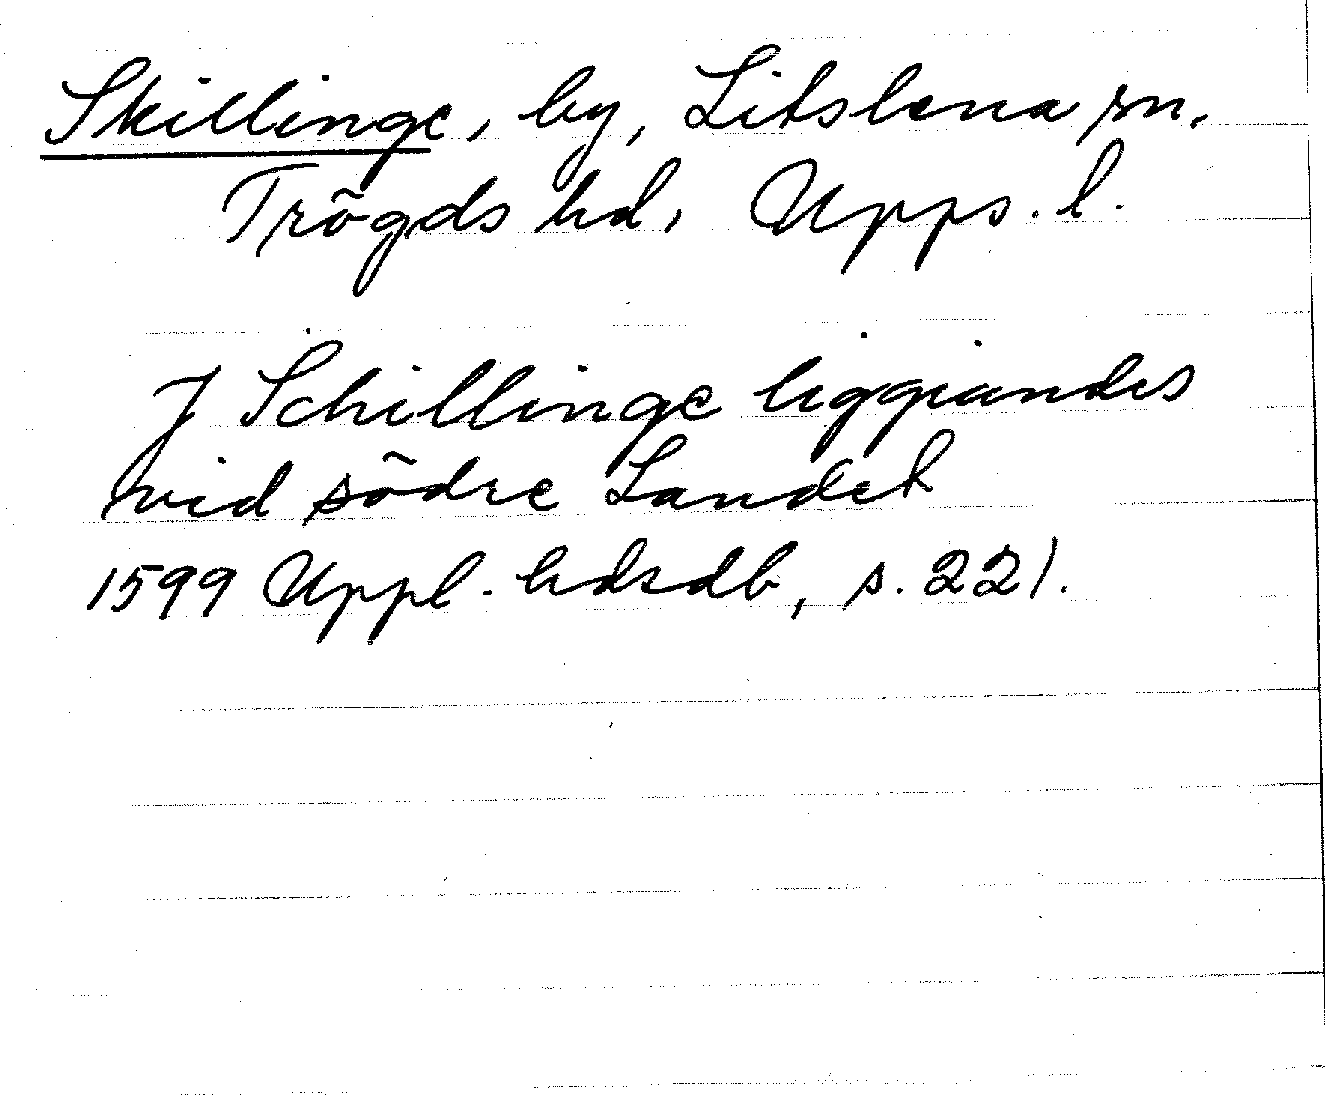 Skillinge, by, Litslena sn.
Trögds hd, Upps. l.
J Schillinge liggiandes
vid södre Landet
1599 Uppl. hdsdb, s. 221.